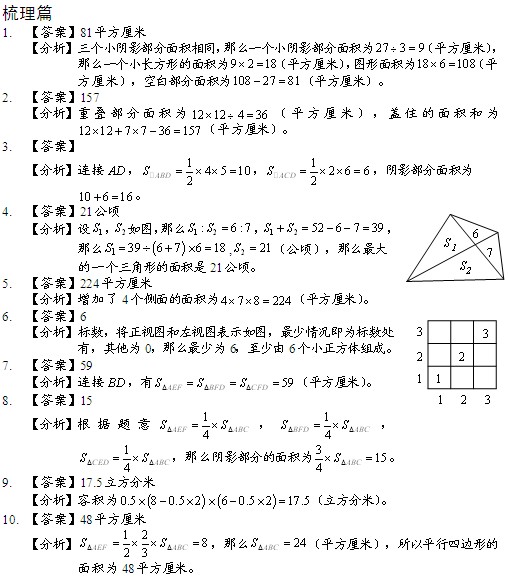 梳理篇
1. 【答案】81平方厘米
【分析】三个小阴影部分面积相同，那么一个小阴影部分面积为27÷3=9（平方厘米），
那么一个小长方形的面积为9×2=18（平方厘米），图形面积为18×6=108（平
方厘米），空白部分面积为108−27=81（平方厘米）。
2. 【答案】157
【分析】重叠部分面积为12×12÷4=36（平方厘米），盖住的面积和为
12×12+7×7−36=157（平方厘米）。
3. 【答案】
【分析】连接AD，S□ABD=1/2×4×5=10，S□ACD=1/2×2×6=6，阴影部分面积为
10+6=16。
4. 【答案】21公顷
【分析】设S1,S2如图，那么S1:S2=6:7，S1+S2=52−6−7=39，
那么S1=39÷(6+7)×6=18，S2=21（公顷），那么最大
的一个三角形的面积是21公顷。
S1 6 7 S2
5. 【答案】224平方厘米
【分析】增加了4个侧面的面积为4×7×8=224（平方厘米）。
6. 【答案】6
【分析】标数，将正视图和左视图表示如图，最少情况即为标数处
有，其他为0，那么最少为6，至少由6个小正方体组成。
3 3
2 2
1 1
1 2 3
7. 【答案】59
【分析】连接BD，有S△AEF=S△BFD=S△CFD=59（平方厘米）。
8. 【答案】15
【分析】根据题意S△AEF=1/4×S△ABC，S△BFD=1/4×S△ABC，
S△CED=1/4×S△ABC，那么阴影部分的面积为3/4×S△ABC=15。
9. 【答案】17.5立方分米
【分析】容积为0.5×(8−0.5×2)×(6−0.5×2)=17.5（立方分米）。
10. 【答案】48平方厘米
【分析】S△AEF=1/2×2/3×S△ABC=8，那么S△ABC=24（平方厘米），所以平行四边形的
面积为48平方厘米。